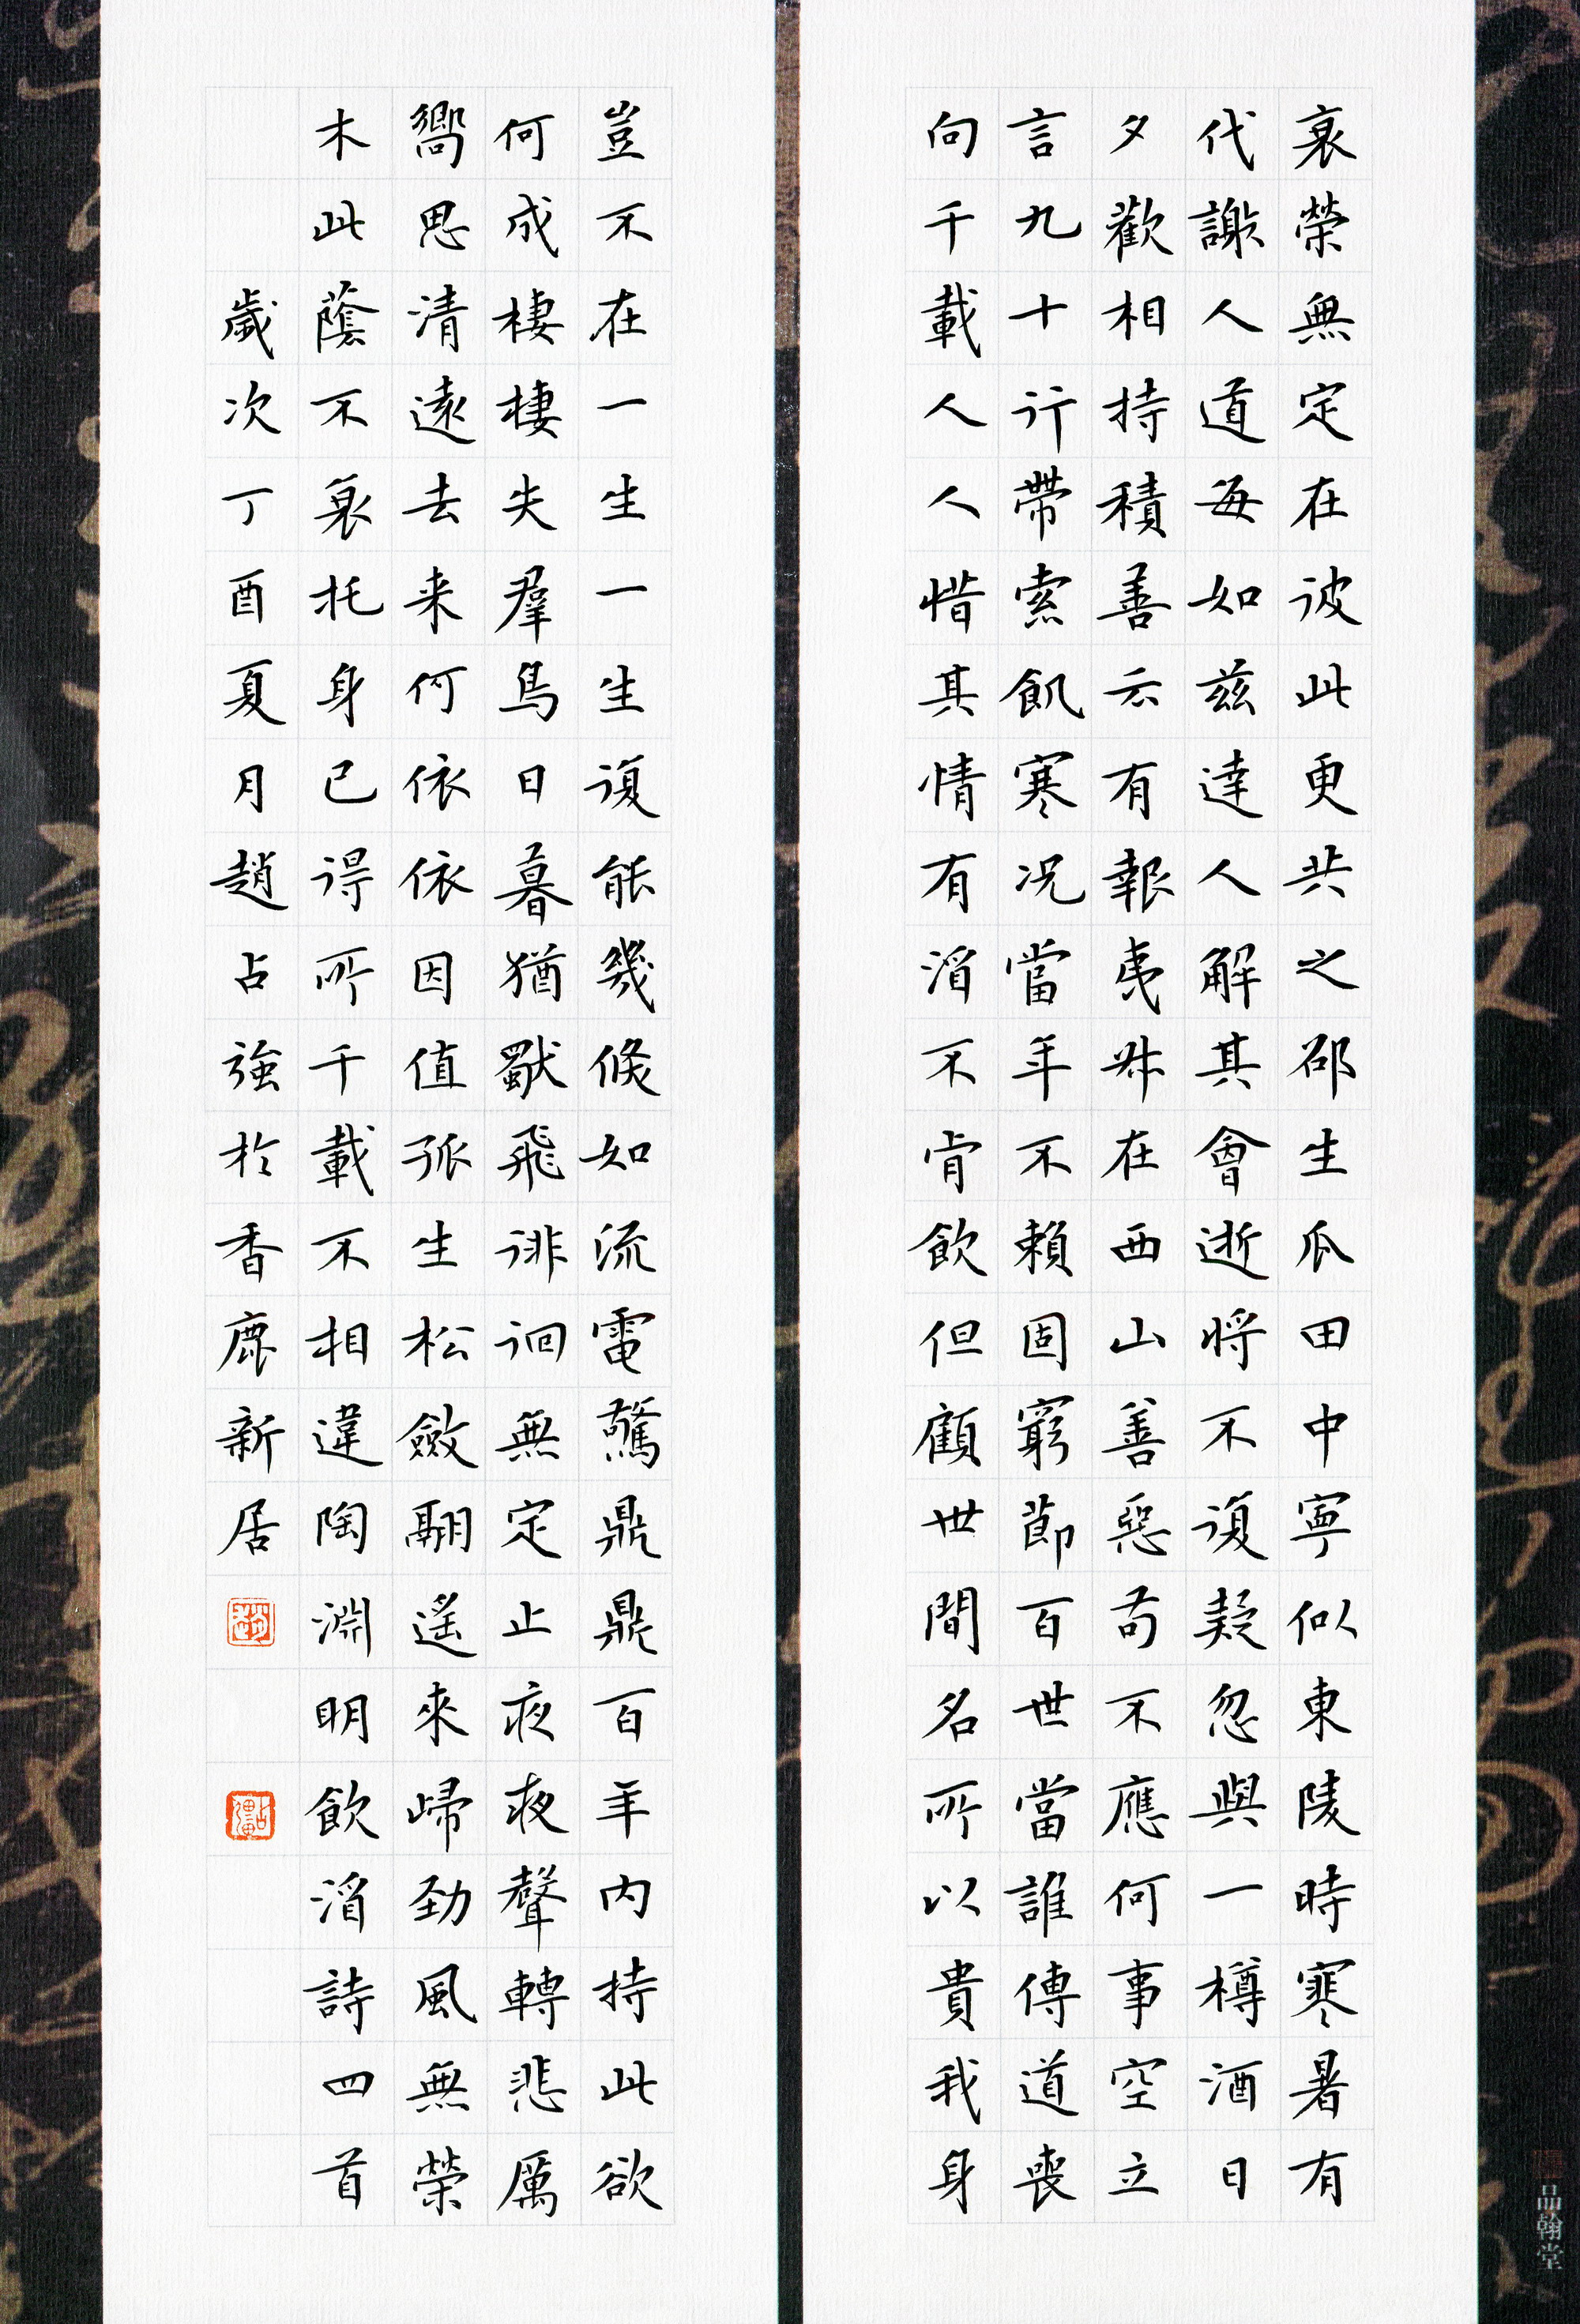 衰榮無定在彼此更共之邵生瓜田中寧似東陵時寒暑有
代謝人道每如茲達人解其會逝將不復疑忽與一樽酒日
夕歡相持積善云有報夷叔在西山善惡苟不應何事空立
言九十行帶索飢寒況當年不賴固窮節百世當誰傳道喪
向千載人人惜其情有酒不肯飲但顧世間名所以貴我身
豈不在一生一生復能幾倏如流電驚鼎鼎百年內持此欲
何成棲棲失羣鳥日暮猶獨飛徘徊無定止夜夜聲轉悲厲
嚮思清遠去来何依依因值孤生松斂翮遙來歸勁風無榮
木此蔭不衰托身已得所千載不相違陶淵明飲酒詩四首
歲次丁酉夏月趙占強於香鹿新居
品翰堂